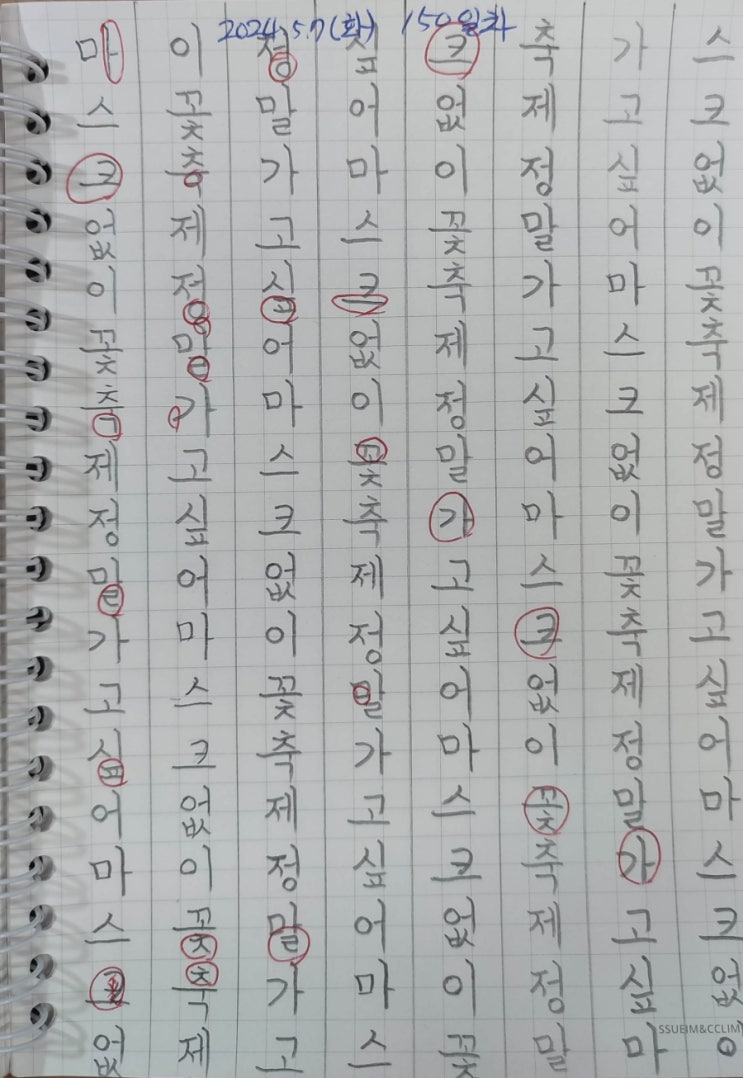 2024. 5. 7 (화) 150일차
마스크없이꽃축제정말가고싶어마스크없
이꽃축제정말가고싶어마스크없이꽃축제
정말가고싶어마스크없이꽃축제정말가고
싶어마스크없이꽃축제정말가고싶어마스
크없이꽃축제정말가고싶어마스크없이꽃
축제정말가고싶어마스크없이꽃축제정말
가고싶어마스크없이꽃축제정말가고싶마
스크없이꽃축제정말가고싶어마스크없
SSUEIM&CCLIM